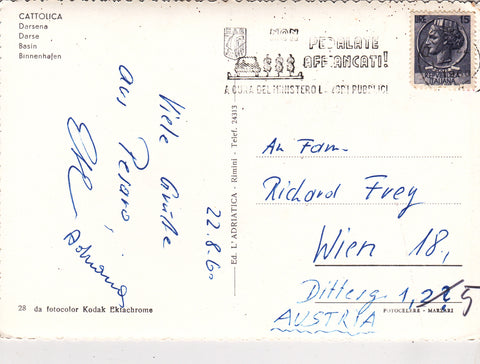 CATTOLICA
Darsena
Darse
Basin
Binnenhafen
LIRE 15
PEDALATE
AFFIANCATI!
A CURA DEL MINISTERO L PUBBLICI
ITALIANA
Viele Grüße
aus Pesaro,
22.8.60
Ed. L'ADRIATICA - Rimini - Telef. 24313
An Fam.
Richard Frey
Wien 18,
Ditterg. 1,
AUSTRIA
28 da fotocolor Kodak Ektachrome
FOTOCELERE - MARZARI